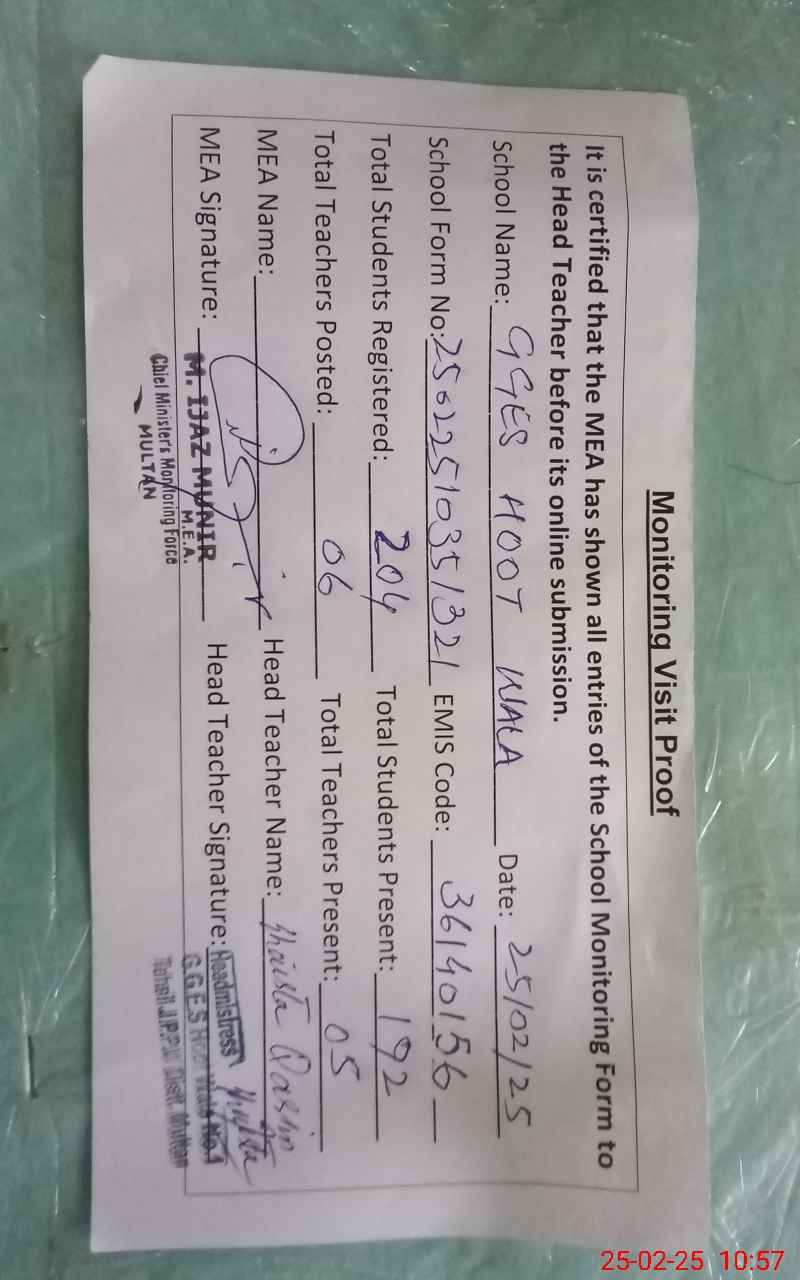 Monitoring Visit Proof
It is certified that the MEA has shown all entries of the School Monitoring Form to
the Head Teacher before its online submission.
School Name: GGES HOOT WALA Date: 25/02/25
School Form No: 25022510351321 EMIS Code: 36140156
Total Students Registered: 204 Total Students Present: 192
Total Teachers Posted: 06 Total Teachers Present: 05
MEA Name: Head Teacher Name: Shaista
MEA Signature: Head Teacher Signature:
M. IJAZ MUNIR
M.E.A.
Chief Minister's Monitoring Force
MULTAN
Headmistress
G.G.E.S Hoot Wala No.1
Tehsil J.P.P.W Distt. Multan
25-02-25 10:57